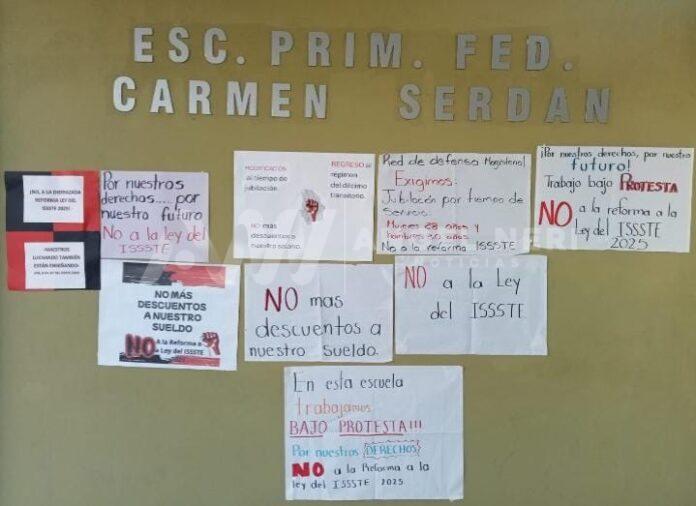 ESC. PRIM. FED.
CARMEN SERDAN
¡NO, A LA DISFRAZADA
REFORMA LEY DEL
ISSSTE 2025!
¡MAESTROS
LUCHANDO TAMBIÉN
ESTÁN ENSEÑANDO!
Por nuestros
derechos.... por
nuestro futuro
No a la ley del
ISSSTE
MODIFICACIÓN
al tiempo de
jubilación.
REGRESO al
régimen
del décimo
transitorio.
NO más
descuentos a
nuestro salario.
Red de defensa Magisterial
Exigimos:
Jubilación por tiempo de
Servicio:
Mujeres 28 años y
hombres 30 años
No a la reforma ISSSTE
¡Por nuestros derechos, por nuestro
futuro!
Trabajo bajo PROTESTA
NO a la reforma a la
Ley del ISSSTE
2025
NO MÁS
DESCUENTOS
A NUESTRO
SUELDO
NO A la Reforma a
la Ley del ISSSTE
NO mas
descuentos a
nuestro Sueldo.
NO a la Ley
del ISSSTE
En esta escuela
trabajamos
BAJO PROTESTA!!!
Por nuestros DERECHOS
NO a la Reforma a la
ley del ISSSTE 2025
NOTICIAS